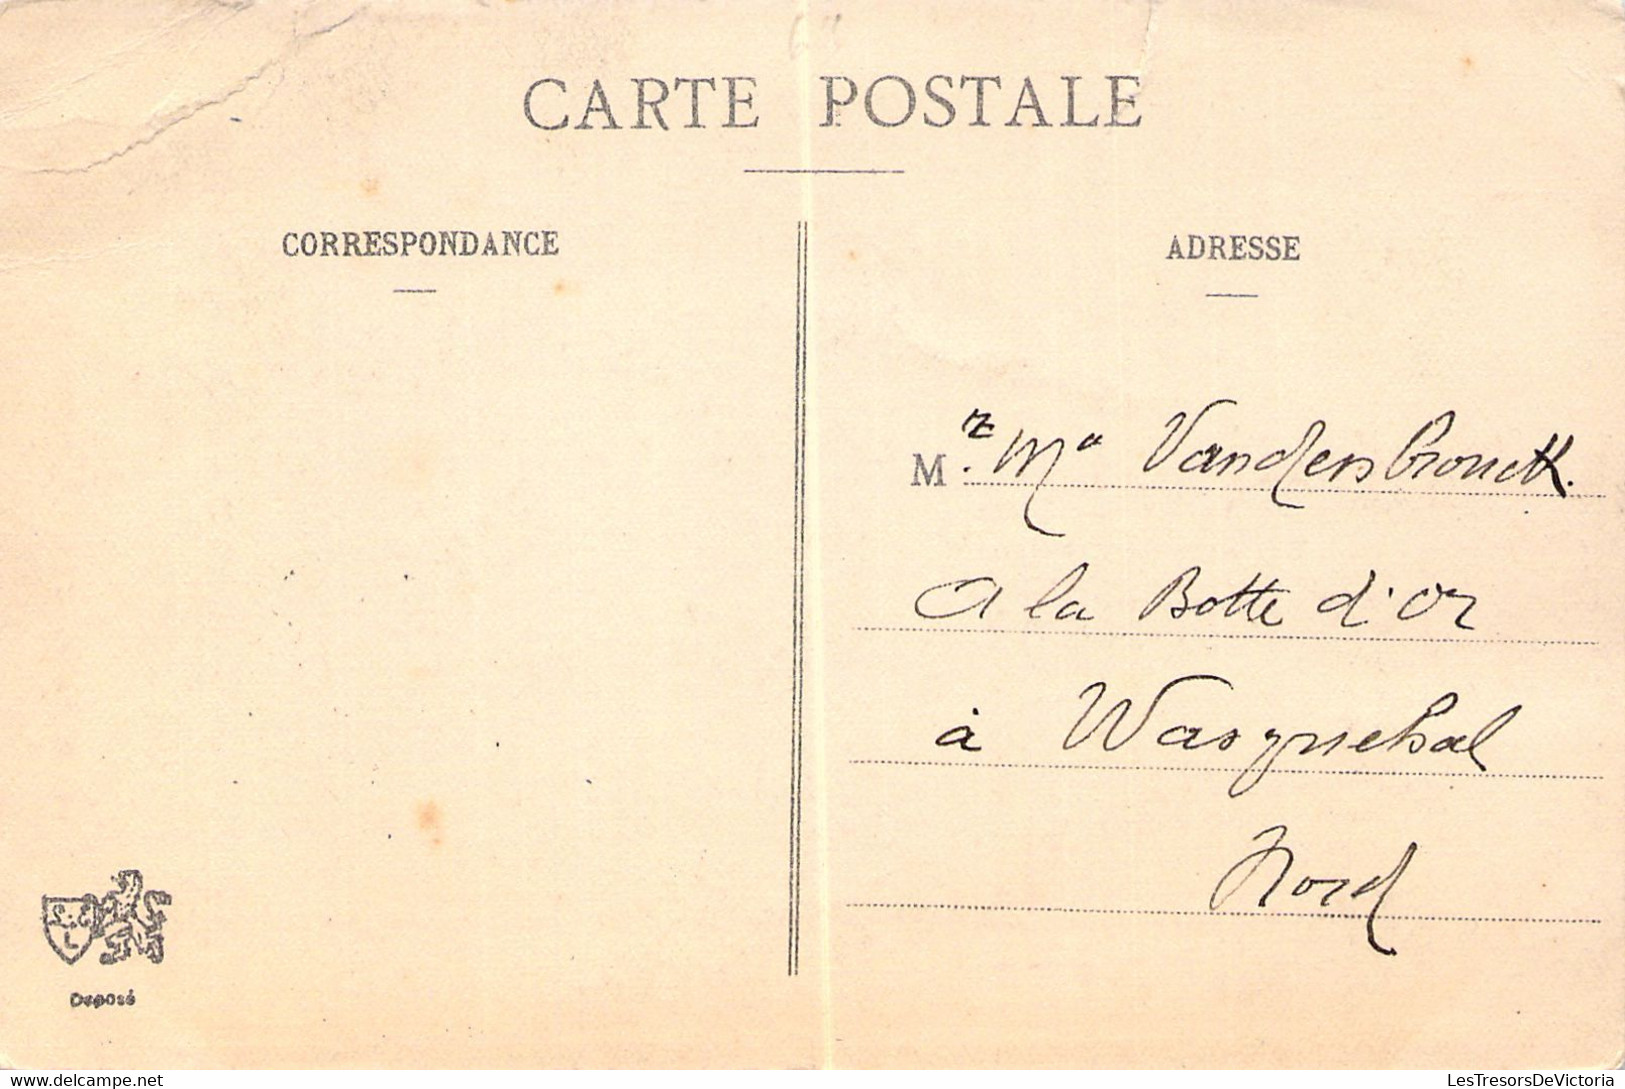 CARTE POSTALE
CORRESPONDANCE
ADRESSE
Mr. Me Vandersbrouck.
A la Botte d'or
à Wasquehal
Nord
S.C
L
Deposé
www.delcampe.net
LesTresorsDeVictoria